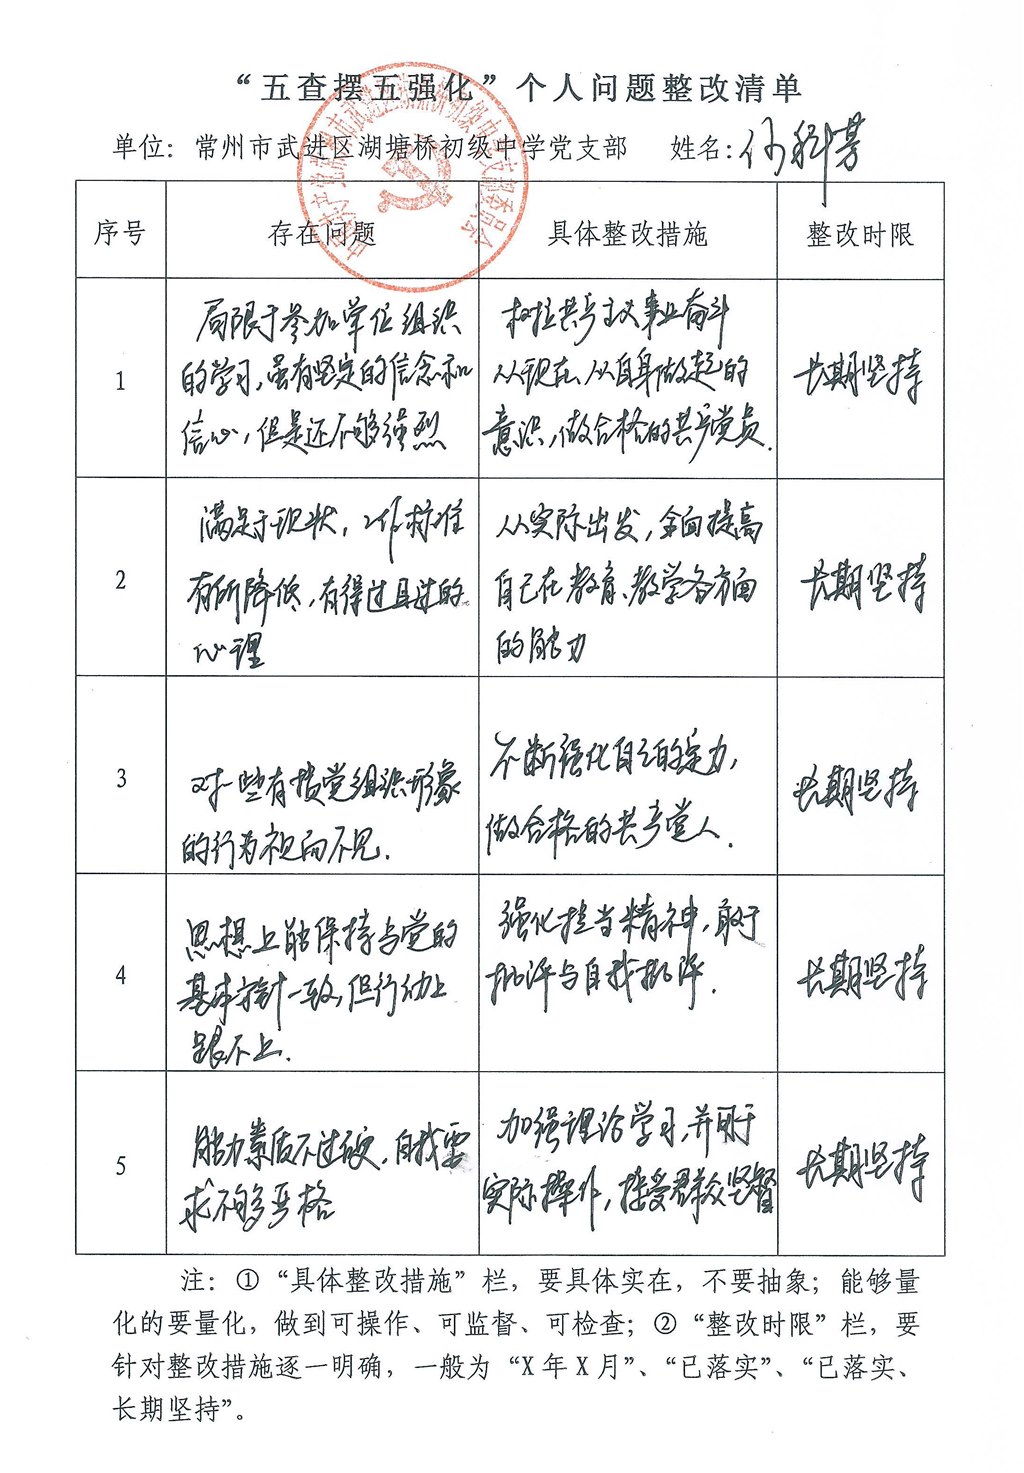 “五查摆五强化”个人问题整改清单
单位：常州市武进区湖塘桥初级中学党支部 姓名：
序号 存在问题 具体整改措施 整改时限
1
局限于参加单位组织
的学习，虽有坚定的信念和
信心，但是还不够强烈
树立共产主义事业奋斗
从现在、从自身做起的
意识，做合格的共产党员.
长期坚持
2
满足于现状，工作标准
有所降低，有得过且过的
心理
从实际出发，全面提高
自己在教育、教学各方面
的能力
长期坚持
3
对一些有损党组织形象
的行为视而不见.
不断强化自己的定力，
做合格的共产党人.
长期坚持
4
思想上能保持与党的
基本方针一致，但行动上
跟不上.
强化担当精神，敢于
批评与自我批评.
长期坚持
5
能力素质不过硬，自我要
求不够严格
加强理论学习，并用于
实际操作，接受群众坚督
长期坚持
注：①“具体整改措施”栏，要具体实在，不要抽象；能够量
化的要量化，做到可操作、可监督、可检查；②“整改时限”栏，要
针对整改措施逐一明确，一般为“X年X月”、“已落实”、“已落实、
长期坚持”。